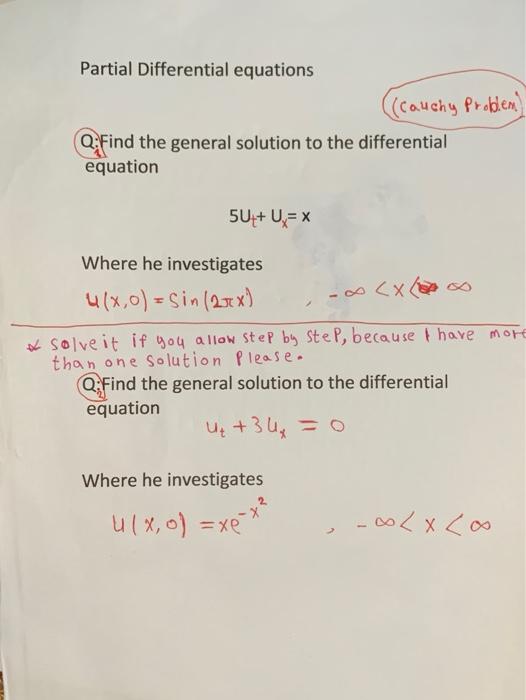 Partial Differential equations
(Cauchy Problem)
Q:Find the general solution to the differential
1
equation
5Ut+ Ux= x
Where he investigates
u(x,0) = Sin(2πx) , -∞ <x< ∞
* solve it if you allow step by step, because I have more
than one solution please.
Q:Find the general solution to the differential
2
equation
ut + 3ux = 0
Where he investigates
u(x,0) = xe^-x^2 , -∞< x <∞